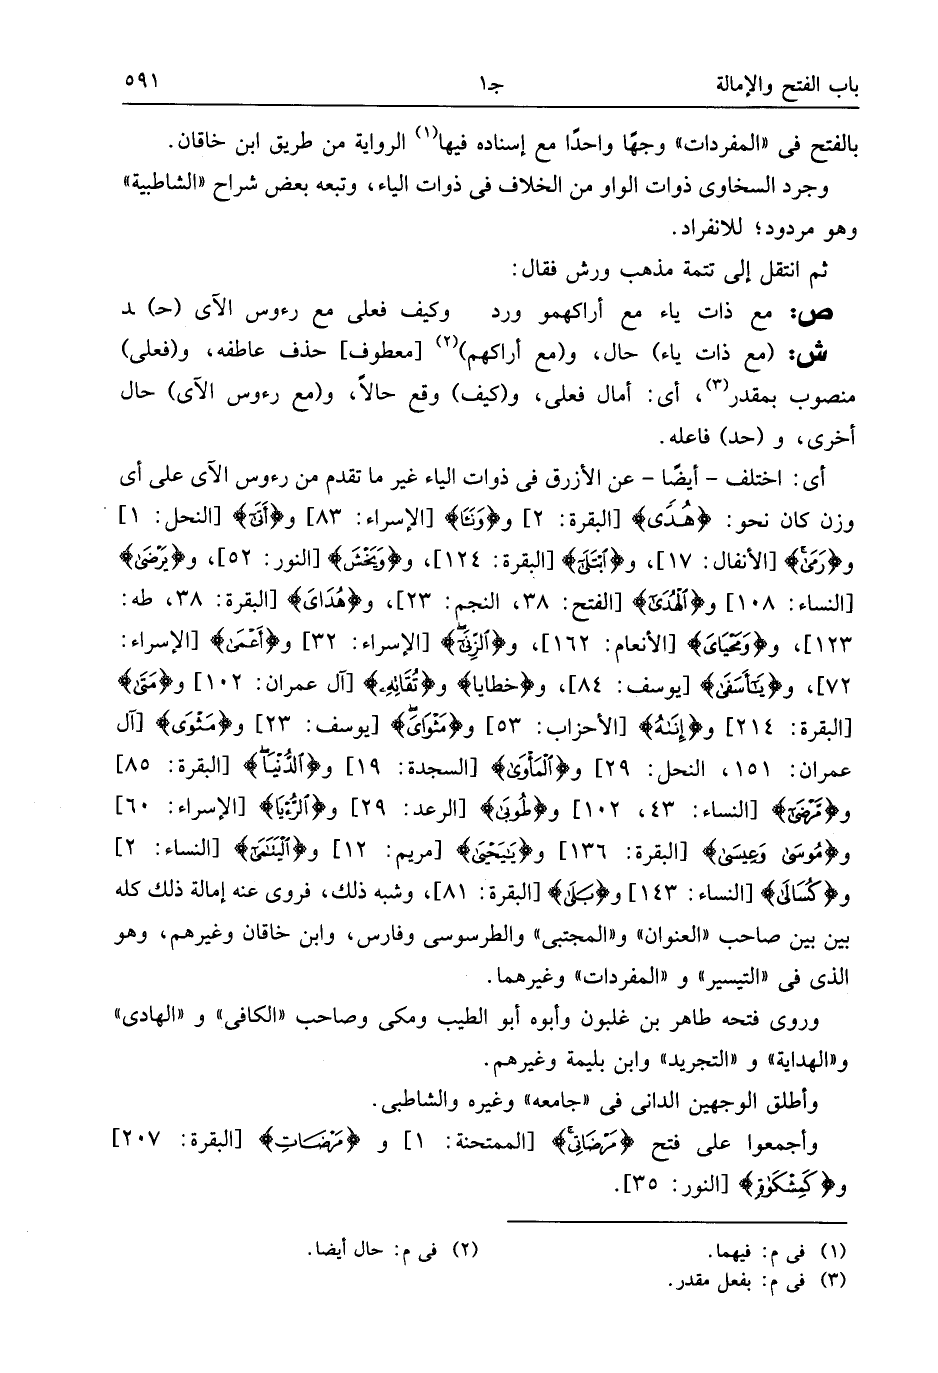 باب الفتح والإمالة جـ١ ٥٩١
بالفتح فى «المفردات» وجهًا واحدًا مع إسناده فيها(١) الرواية من طريق ابن خاقان.
وجرد السخاوى ذوات الواو من الخلاف فى ذوات الياء، وتبعه بعض شراح «الشاطبية»
وهو مردود؛ للانفراد.
ثم انتقل إلى تتمة مذهب ورش فقال:
ص: مع ذات ياء مع أراكهمو ورد وكيف فعلى مع رءوس الآى (حـ) ـد
ش: (مع ذات ياء) حال، و(مع أراكهم)(٢) [معطوف] حذف عاطفه، و(فعلى)
منصوب بمقدر(٣)، أى: أمال فعلى، و(كيف) وقع حالاً، و(مع رءوس الآى) حال
أخرى، و (حد) فاعله.
أى: اختلف - أيضًا - عن الأزرق فى ذوات الياء غير ما تقدم من رءوس الآى على أى
وزن كان نحو: ﴿هُدًى﴾ [البقرة: ٢] و﴿وَنَـَٔا﴾ [الإسراء: ٨٣] و﴿أَتَىٰٓ﴾ [النحل: ١]
و﴿رَمَىٰ﴾ [الأنفال: ١٧]، و﴿ٱبْتَلَىٰٓ﴾ [البقرة: ١٢٤]، و﴿وَيَخْشَ﴾ [النور: ٥٢]، و﴿يَرْضَىٰ﴾
[النساء: ١٠٨] و﴿ٱلْهُدَىٰٓ﴾ [الفتح: ٣٨، النجم: ٢٣]، و﴿هُدَاىَ﴾ [البقرة: ٣٨، طه:
١٢٣]، و﴿وَمَحْيَاىَ﴾ [الأنعام: ١٦٢]، و﴿ٱلزِّنَىٰٓ﴾ [الإسراء: ٣٢] و﴿أَعْمَىٰ﴾ [الإسراء:
٧٢]، و﴿يَٰٓأَسَفَىٰ﴾ [يوسف: ٨٤]، و﴿خطايا﴾ و﴿تُقَاتِهِۦ﴾ [آل عمران: ١٠٢] و﴿مَتَىٰ﴾
[البقرة: ٢١٤] و﴿إِنَىٰهُ﴾ [الأحزاب: ٥٣] و﴿مَثْوَاىَ﴾ [يوسف: ٢٣] و﴿مَثْوَى﴾ [آل
عمران: ١٥١، النحل: ٢٩] و﴿ٱلْمَأْوَىٰ﴾ [السجدة: ١٩] و﴿ٱلدُّنْيَا﴾ [البقرة: ٨٥]
و﴿مَّرْضَىٰٓ﴾ [النساء: ٤٣، ١٠٢] و﴿طُوبَىٰ﴾ [الرعد: ٢٩] و﴿ٱلرُّءْيَا﴾ [الإسراء: ٦٠]
و﴿مُوسَىٰ وَعِيسَىٰ﴾ [البقرة: ١٣٦] و﴿يَٰيَحْيَىٰ﴾ [مريم: ١٢] و﴿ٱلْيَتَٰمَىٰٓ﴾ [النساء: ٢]
و﴿كُسَالَىٰ﴾ [النساء: ١٤٣] و﴿بَلَىٰ﴾ [البقرة: ٨١]، وشبه ذلك، فروى عنه إمالة ذلك كله
بين بين صاحب «العنوان» و«المجتبى» والطرسوسى وفارس، وابن خاقان وغيرهم، وهو
الذى فى «التيسير» و «المفردات» وغيرهما.
وروى فتحه طاهر بن غلبون وأبوه أبو الطيب ومكى وصاحب «الكافى» و «الهادى»
و«الهداية» و «التجريد» وابن بليمة وغيرهم.
وأطلق الوجهين الدانى فى «جامعه» وغيره والشاطبى.
وأجمعوا على فتح ﴿مَرْضَاتِى﴾ [الممتحنة: ١] و ﴿مَرْضَاتِ﴾ [البقرة: ٢٠٧]
و﴿كَمِشْكَوٰةٍ﴾ [النور: ٣٥].
(١) فى م: فيهما. (٢) فى م: حال أيضا.
(٣) فى م: بفعل مقدر.